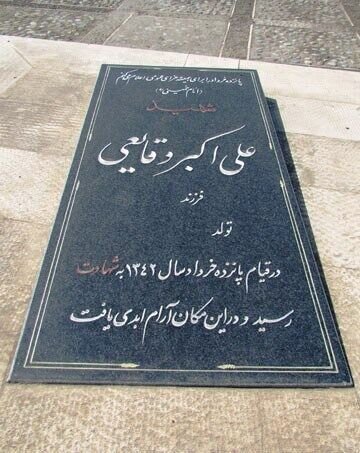 پانزده خرداد را برای همیشه عزای عمومی اعلام می‌کنم
(امام خمینی ره)
شهید
علی اکبر وقایعی
فرزند
تولد
در قیام پانزده خرداد سال ۱۳۴۲ به شهادت
رسید و در این مکان آرام ابدی یافت